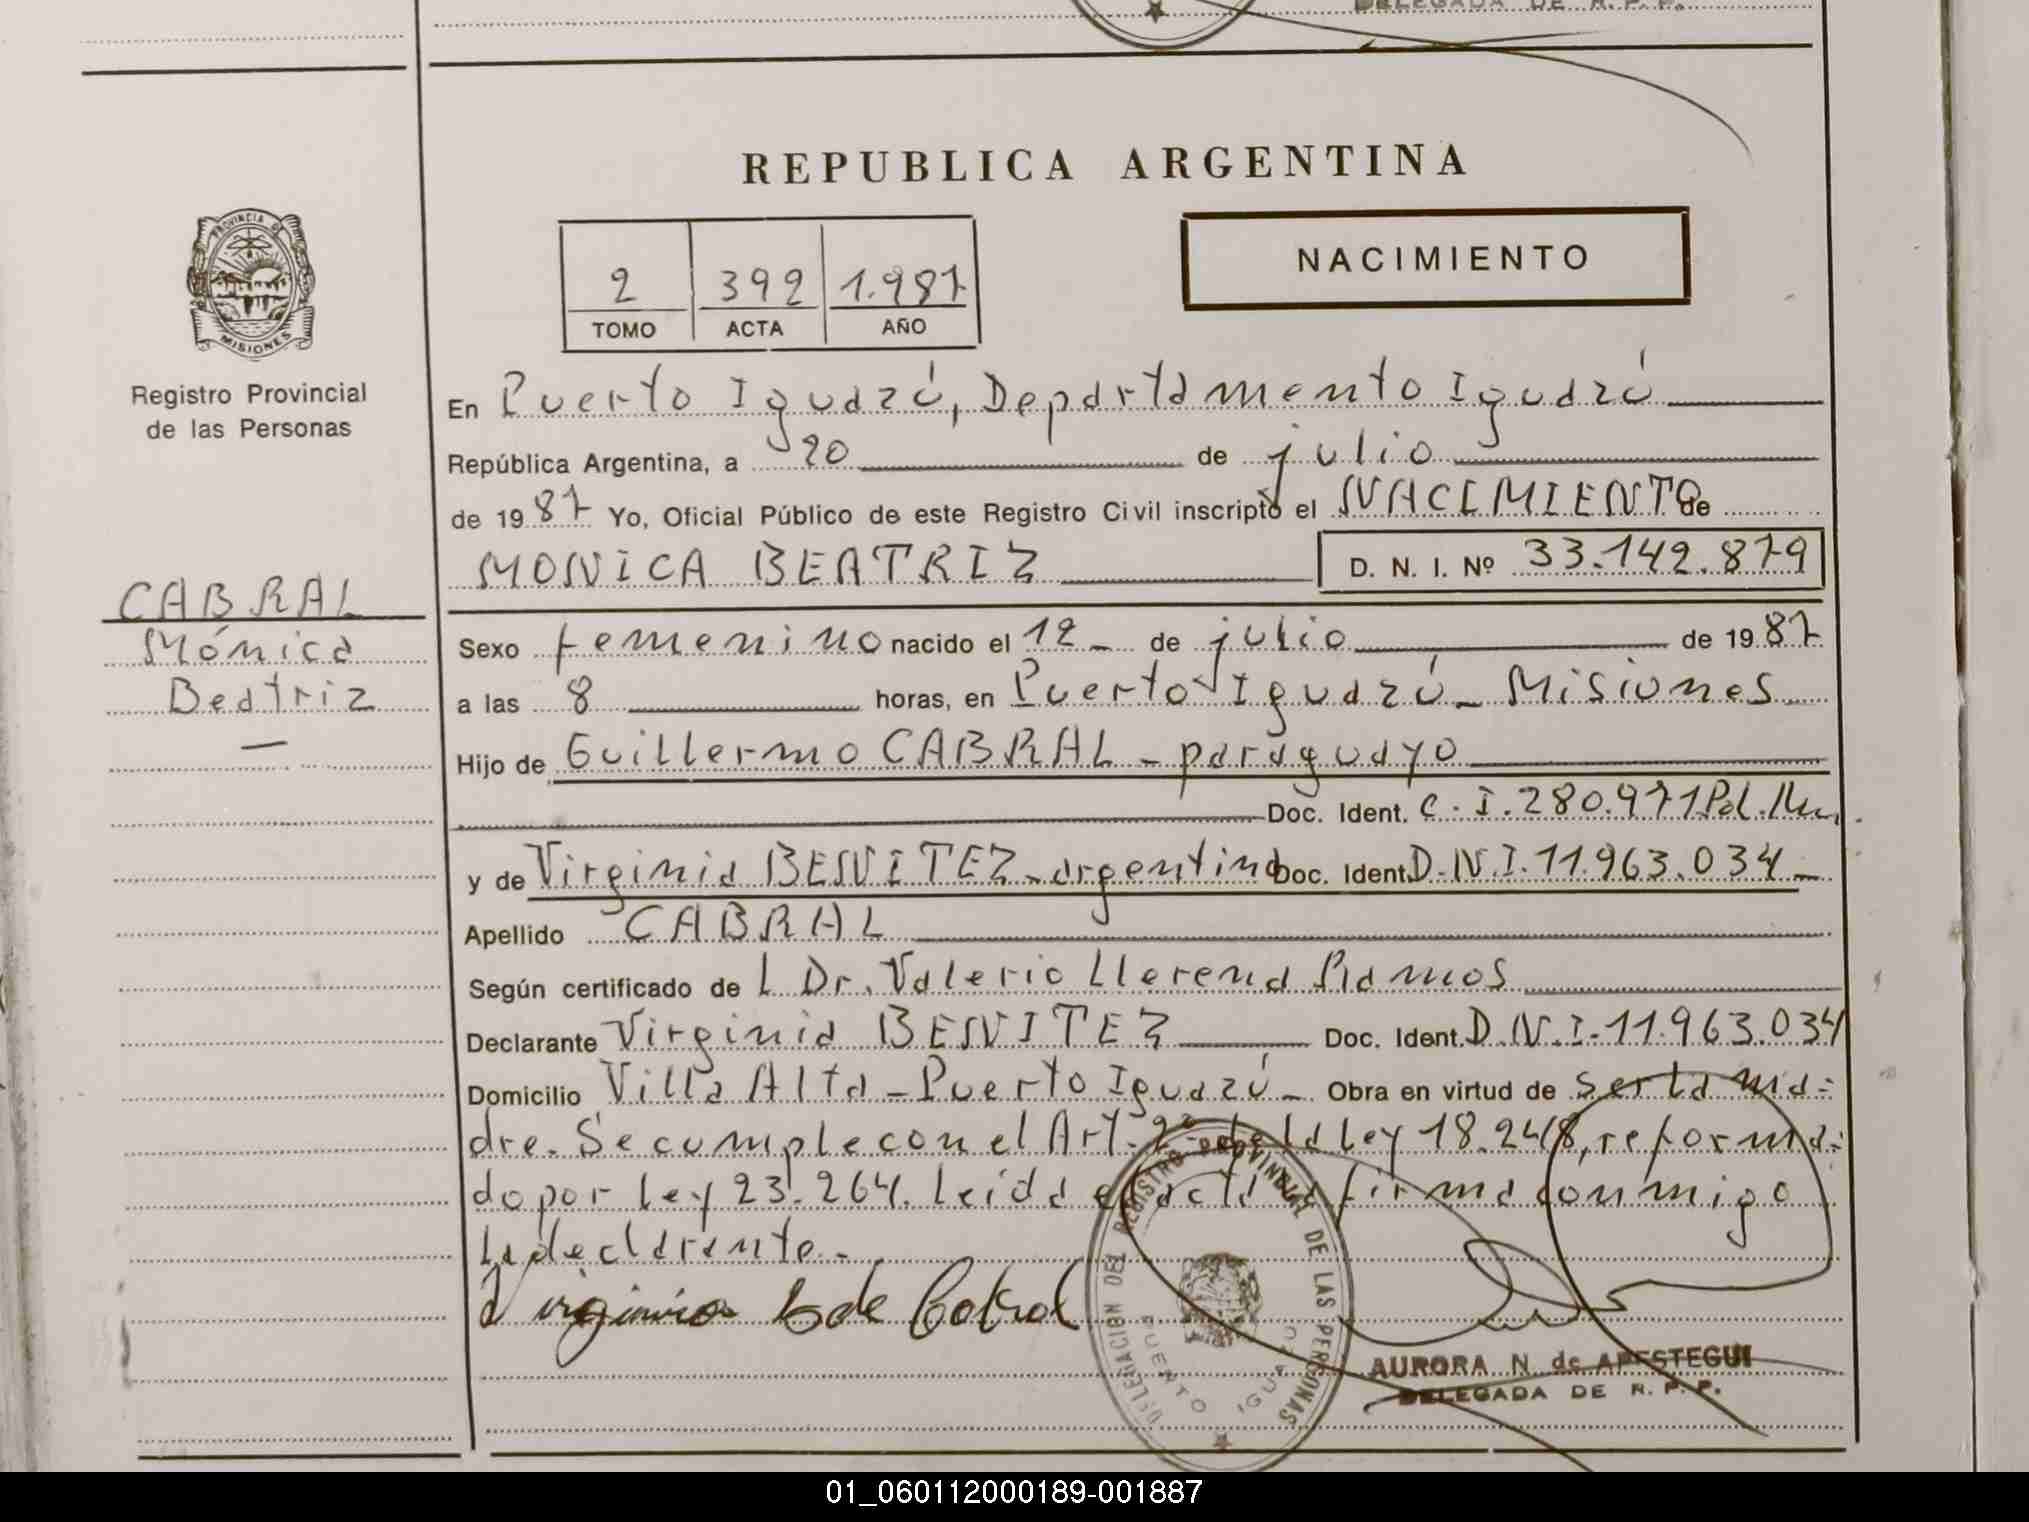 DELEGADA DE R. P. P.
REPUBLICA ARGENTINA
PROVINCIA DE
MISIONES
Registro Provincial
de las Personas
2 392 1.987
TOMO ACTA AÑO
NACIMIENTO
En Puerto Iguazú, Departamento Iguazú
República Argentina, a 20 de julio
de 1987 Yo, Oficial Público de este Registro Civil inscripto el NACIMIENTO de
MONICA BEATRIZ D. N. I. Nº 33.142.879
CABRAL
Mónica
Beatriz
Sexo femenino nacido el 12 de julio de 1987
a las 8 horas, en Puerto Iguazú - Misiones
Hijo de Guillermo CABRAL - paraguayo
Doc. Ident. C.I. 280.971 Pol.
y de Virginia BENITEZ - argentina Doc. Ident. D.N.I. 11.963.034 -
Apellido CABRAL
Según certificado de L Dr. Valerio Llerena Ramos
Declarante Virginia BENITEZ Doc. Ident. D.N.I. 11.963.034
Domicilio Villa Alta - Puerto Iguazú - Obra en virtud de ser la ma=
dre. Se cumple con el Art. 2º de la ley 18.248, reforma=
do por ley 23.264. Leída el acta firma conmigo
la declarante.-
Virginia B de Cabral
DELEGACION DEL REGISTRO PROVINCIAL DE LAS PERSONAS
PUERTO IGUAZU
AURORA N. de APESTEGUI
DELEGADA DE R. P. P.
01_060112000189-001887